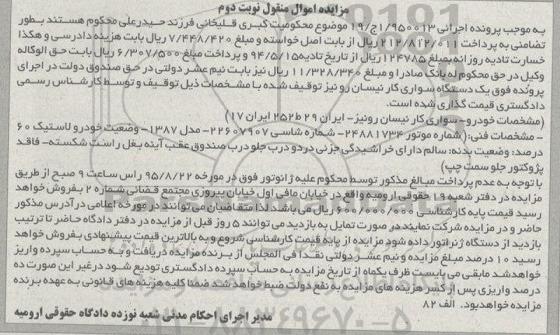 مزایده اموال منقول نوبت دوم
به موجب پرونده اجرائی ۹۵۰۰۱۳/اج/۱۹ موضوع محکومیت کبری قلیخانی فرزند حیدرعلی محکوم هستند بطور
تضامنی به پرداخت ۲۱۲/۸۱۲/۰۱۱ ریال از بابت اصل خواسته و مبلغ ۷/۴۴۸/۴۲۰ ریال بابت هزینه دادرسی و هکذا
خسارت تادیه روزانه بمبلغ ۱۲۴۷۸۵ ریال از تاریخ تادیه ۹۴/۵/۱۵ و پرداخت مبلغ ۶/۳۰۷/۵۰۰ ریال بابت حق الوکاله
وکیل در حق محکوم له بانک صادرا و مبلغ ۱۱/۳۲۸/۳۴۰ ریال نیز بابت نیم عشر دولتی در حق صندوق دولت در اجرای
پرونده فوق یک دستگاه سواری کار نیسان رونیز توقیف شده با مشخصات ذیل توقیف و توسط کارشناس رسمی
دادگستری قیمت گذاری شده است.
(مشخصات خودرو- سواری کار نیسان رونیز- ایران ۲۹ ۲۵۲ط ایران ۱۷)
- مشخصات فنی: (شماره موتور ۲۴۸۸۱۷۳۴- شماره شاسی ۲۲۶۰۷۹۰۷- مدل ۱۳۸۷- وضعیت خودرو لاستیک ۶۰
درصد: وضعیت بدنه: سالم دارای خراشیدگی جزئی در دو درب جلو درب صندوق عقب آینه بغل راست شکسته- فاقد
پژوکتور جلو سمت چپ)
با توجه به عدم پرداخت مبالغ مذکور توسط محکوم علیه ژانوتور فوق در مورخه ۹۵/۸/۲۲ راس ساعت ۹ صبح از طریق
مزایده در دفتر شعبه ۱۹ حقوقی ارومیه واقع در خیابان مافی اول خیابان پیروزی مجتمع قضائی شماره ۲ بفروش خواهد
رسید قیمت پایه کارشناسی ۶۰۰/۰۰۰/۰۰۰ ریال می باشد لذا متقاضیان می توانند در مورخه اعلامی در آدرس مذکور
حاضر و در مزایده شرکت نمایند در صورت تمایل به بازدید می توانند ۵ روز قبل از مزایده در دفتر دادگاه حاضر تا ترتیب
بازدید از دستگاه ژنراتور داده شود مزایده از پایه قیمت کارشناسی شروع و به بالاترین قیمت پیشنهادی بفروش خواهد
رسید ۱۰ درصد مبلغ مزایده و نیم عشر دولتی نقدا فی المجلس از برنده مزایده دریافت و به حساب سپرده واریز
خواهد شد مابقی می بایست ظرف یکماه از تاریخ مزایده به حساب سپرده دادگستری تودیع شود درغیر این صورت ده
درصد واریزی پس از کسر هزینه های مزایده به نفع دولت ضبط خواهد شد ضمنا کلیه هزینه های قانونی به عهده برنده
مزایده خواهد بود. الف ۸۲
مدیر اجرای احکام مدنی شعبه نوزده دادگاه حقوقی ارومیه